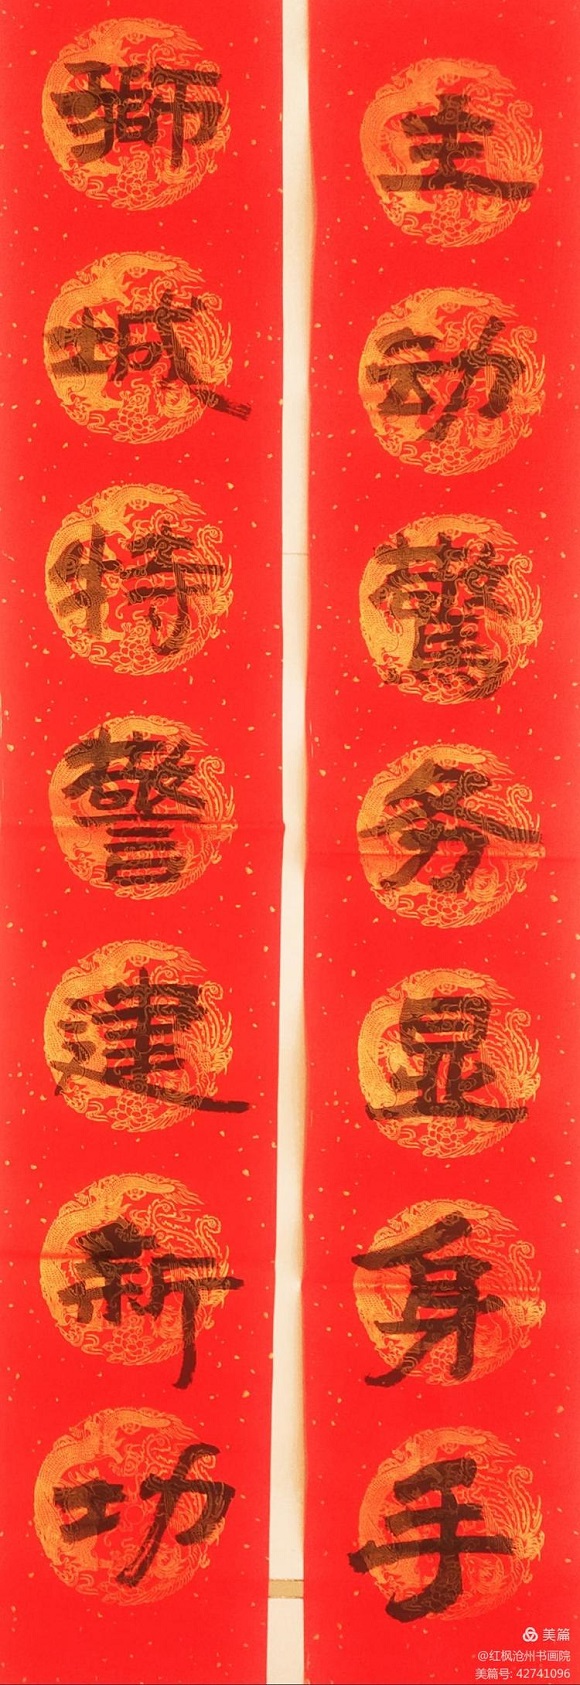 主动警务显身手
狮城特警建新功
美篇
@红枫沧州书画院
美篇号: 42741096